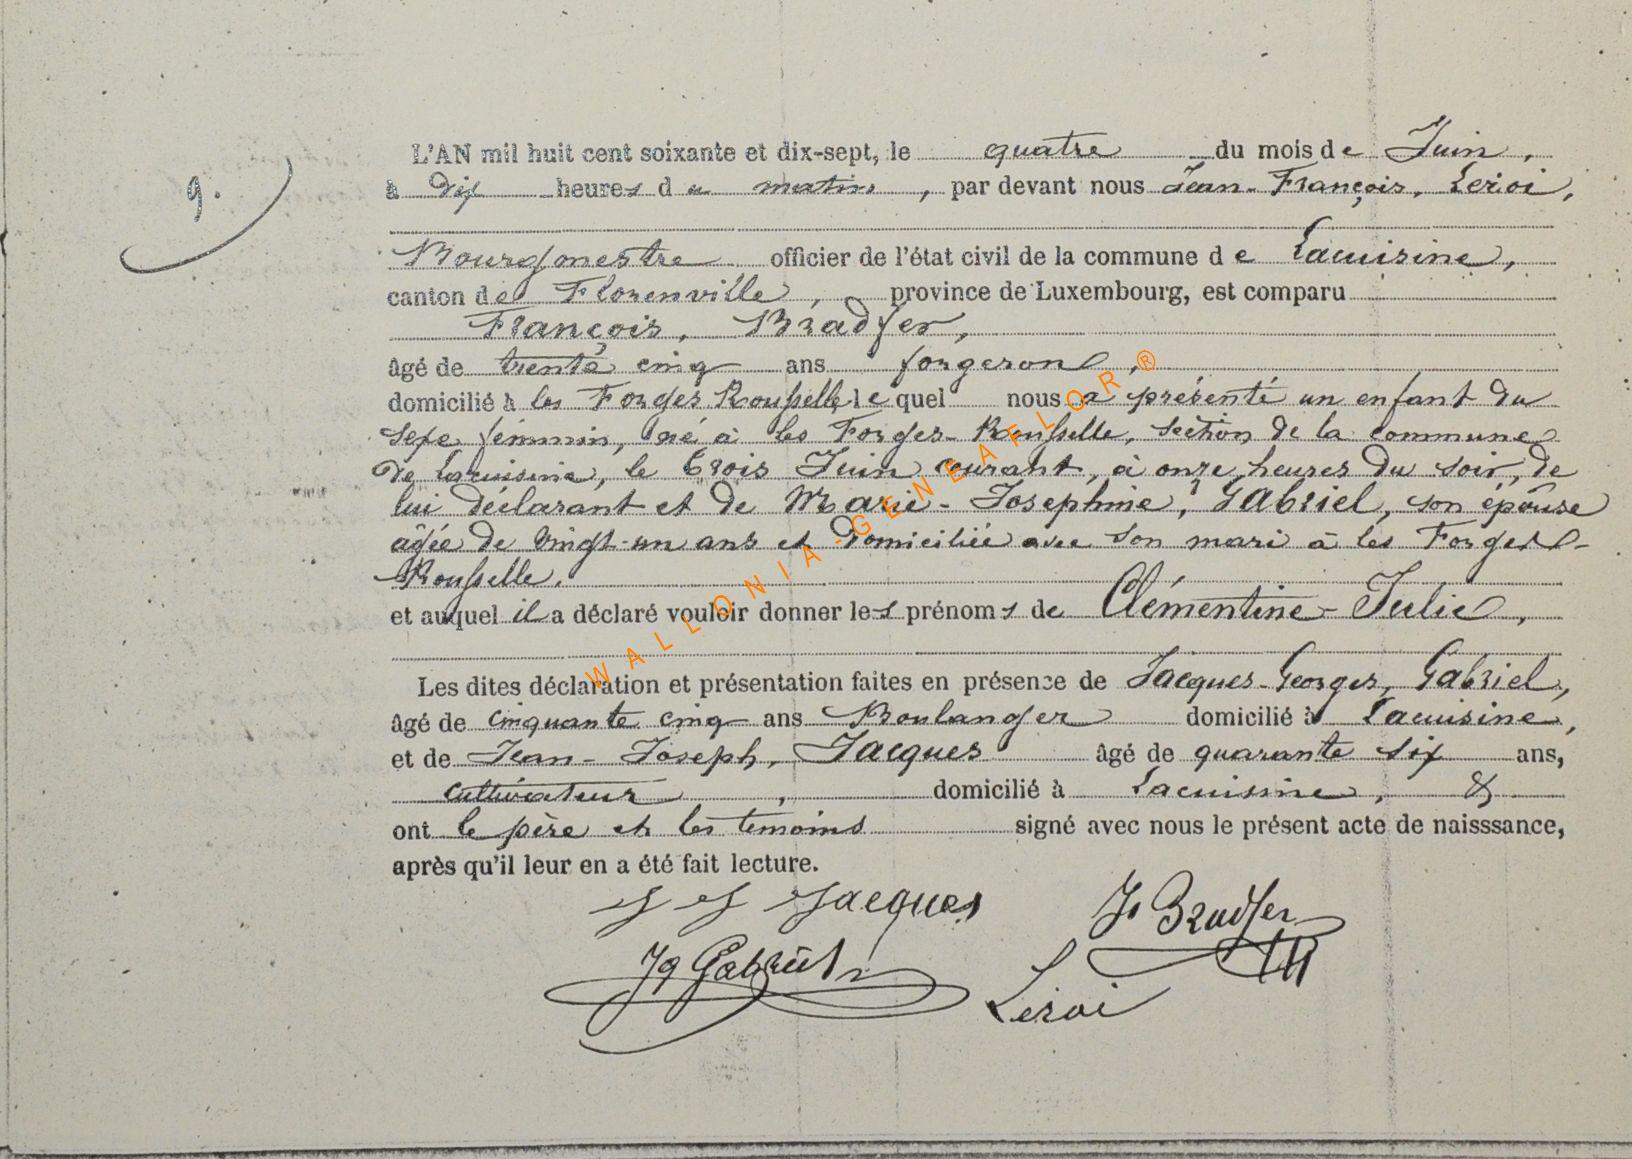 9.
L'AN mil huit cent soixante et dix-sept, le quatre du mois de Juin,
à dix heures du matin, par devant nous Jean-François, Leroi,
Bourgmestre officier de l'état civil de la commune de Lacuisine,
canton de Florenville, province de Luxembourg, est comparu
François, Bradfer,
âgé de trente cinq ans forgeron,
domicilié à les Forges Rousselle lequel nous a présenté un enfant du
sexe féminin, né à les Forges-Rousselle, section de la commune
de Lacuisine, le trois Juin courant, à onze heures du soir, de
lui déclarant et de Marie-Josephine, Gabriel, son épouse
âgée de vingt-un ans et domiciliée avec son mari à les Forges-
Rousselle.
et auquel il a déclaré vouloir donner les prénoms de Clémentine-Julie,
Les dites déclaration et présentation faites en présence de Jacques-Georges, Gabriel,
âgé de cinquante cinq ans Boulanger domicilié à Lacuisine,
et de Jean-Joseph, Jacques âgé de quarante six ans,
cultivateur, domicilié à Lacuisine, &
ont le père et les temoins signé avec nous le présent acte de naisssance,
après qu'il leur en a été fait lecture.
J J Jacques
Fs Bradfer
Jq Gabriel
Leroi
WALLONIA-GENEAFLOR®